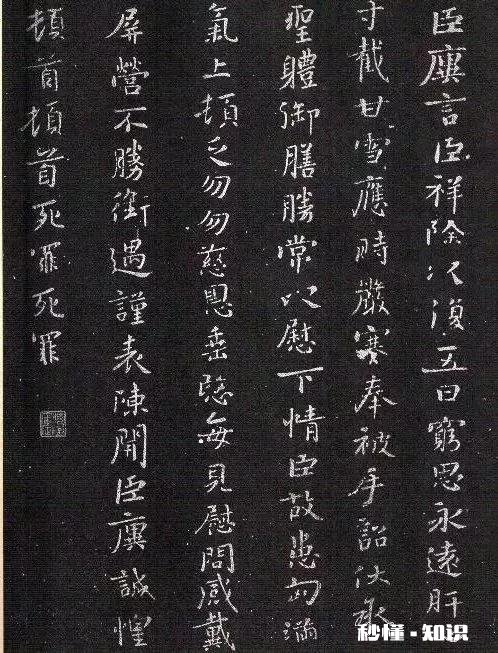 臣廙言臣祥除以復五日窮思永遠肝
寸截甘雪應時嚴寒奉被手詔伏承
聖體御膳勝常以慰下情臣故患匈滿
氣上頓乏勿勿慈恩垂愍每見慰問感戴
屏營不勝銜遇謹表陳聞臣廙誠惶
頓首頓首死罪死罪
秒懂·知识